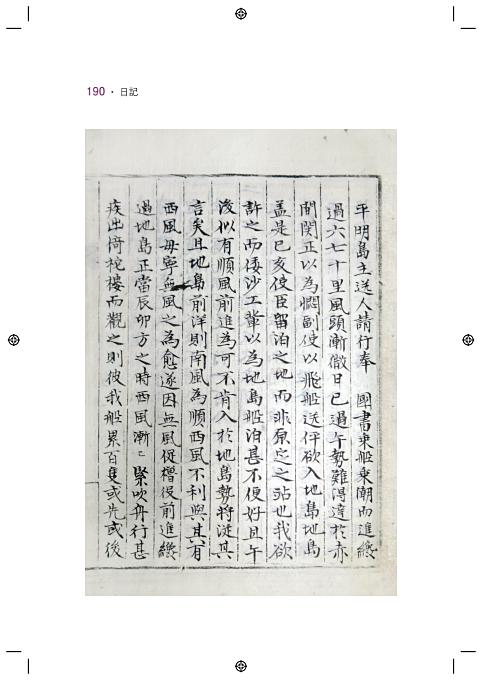 190 · 日記
平明島主送人請行奉 國書乘船乘潮而進纔
過六七十里風頭漸微日已過午勢難得達於赤
間關正以為悶副使以飛船送伻欲入地島地島
盖是已亥使臣留泊之地而非原定之站也我欲
許之而倭沙工輩以為地島船泊甚不便好且午
後似有順風前進為可不肯入於地島勢將從其
言矣且地島前洋則南風為順西風不利與其有
西風毋寧無風之為愈遂因無風促櫓役前進纔
過地島正當辰卯方之時西風漸〻緊吹舟行甚
疾出倚柁樓而觀之則彼我船累百隻或先或後